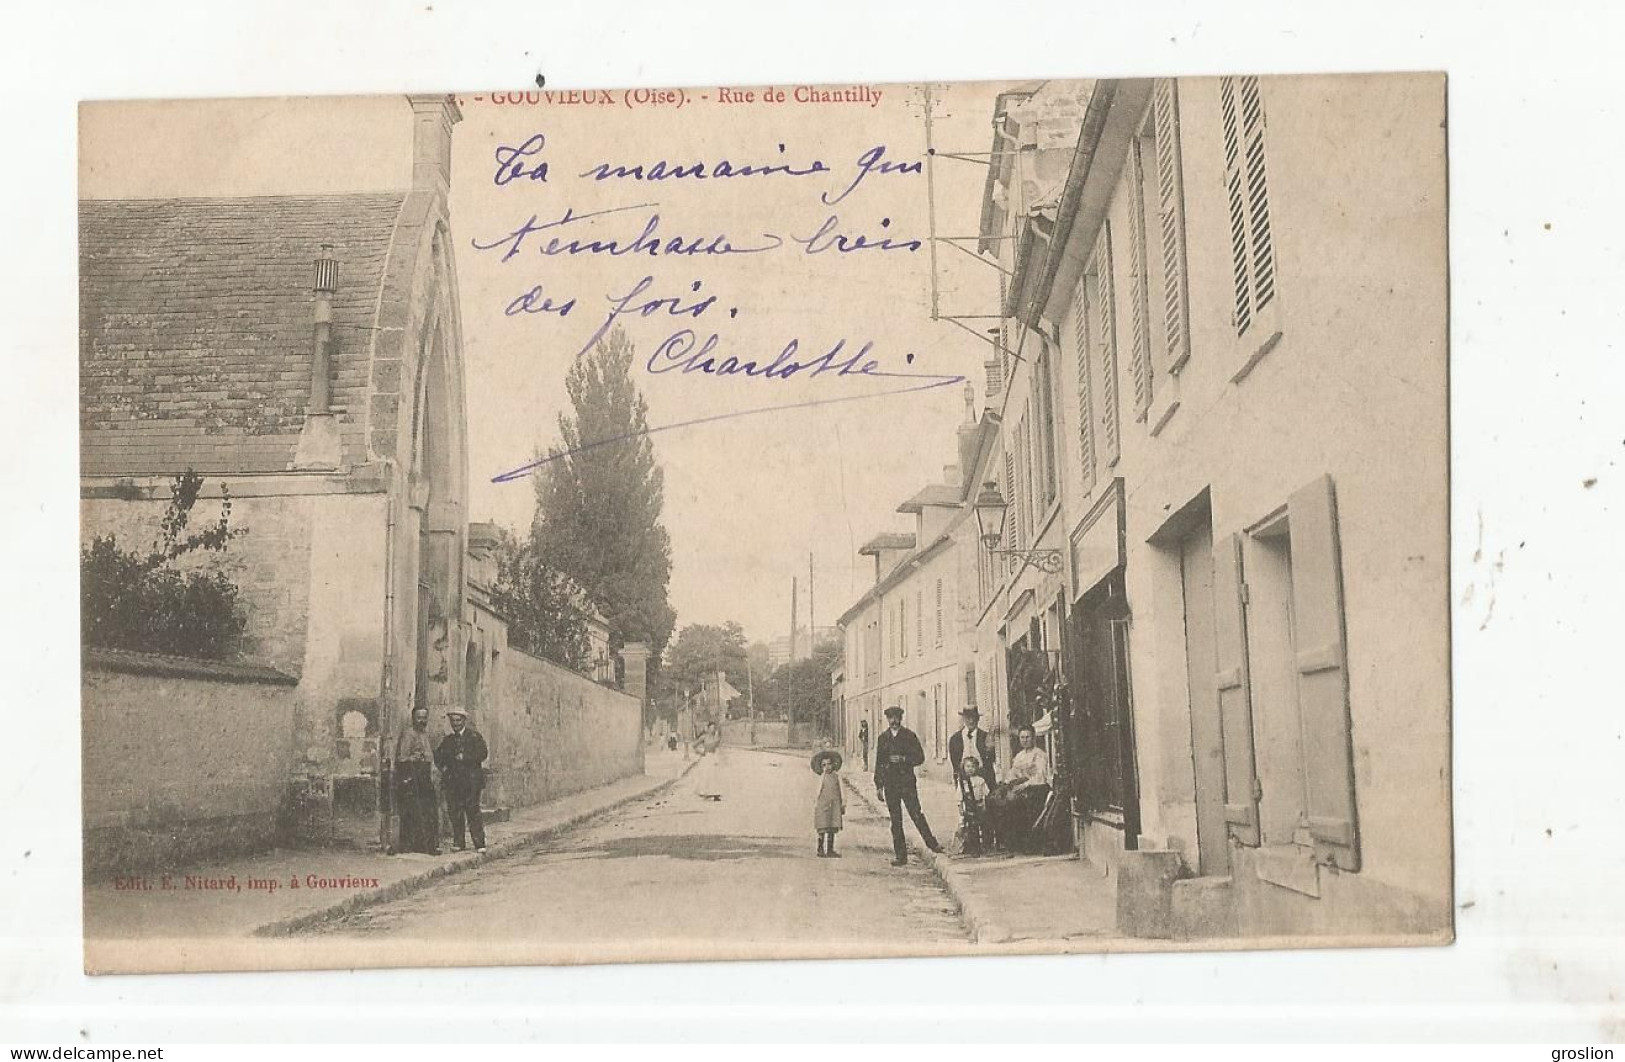 - GOUVIEUX (Oise). - Rue de Chantilly
Ta marraine qui
t'embrasse bien
des fois.
Charlotte.
Edit. E. Nitard, imp. à Gouvieux
www.delcampe.net
groslion